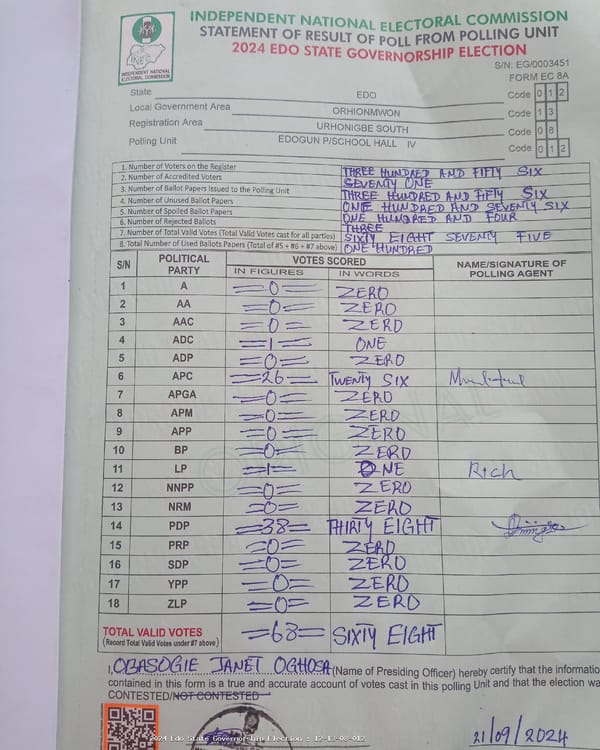 INDEPENDENT NATIONAL ELECTORAL COMMISSION
STATEMENT OF RESULT OF POLL FROM POLLING UNIT
2024 EDO STATE GOVERNORSHIP ELECTION
INEC
INDEPENDENT NATIONAL
ELECTORAL COMMISSION
S/N: EG/0003451
FORM EC 8A
State EDO Code 0 1 2
Local Government Area ORHIONMWON Code 1 3
Registration Area URHONIGBE SOUTH Code 0 8
Polling Unit EDOGUN P/SCHOOL HALL IV Code 0 1 2
1. Number of Voters on the Register THREE HUNDRED AND FIFTY SIX
2. Number of Accredited Voters SEVENTY ONE
3. Number of Ballot Papers Issued to the Polling Unit THREE HUNDRED AND FIFTY SIX
4. Number of Unused Ballot Papers ONE HUNDRED AND SEVENTY SIX
5. Number of Spoiled Ballot Papers ONE HUNDRED AND FOUR
6. Number of Rejected Ballots THREE
7. Number of Total Valid Votes (Total Valid Votes cast for all parties) SIXTY EIGHT SEVENTY FIVE
8. Total Number of Used Ballots Papers (Total of #5 + #6 + #7 above) ONE HUNDRED
S/N POLITICAL PARTY VOTES SCORED NAME/SIGNATURE OF POLLING AGENT
IN FIGURES IN WORDS
1 A =0= ZERO
2 AA =0= ZERO
3 AAC =0= ZERO
4 ADC =1= ONE
5 ADP =0= ZERO
6 APC =26= TWENTY SIX
7 APGA =0= ZERO
8 APM =0= ZERO
9 APP =0= ZERO
10 BP =0= ZERO
11 LP =1= ONE Rich
12 NNPP =0= ZERO
13 NRM =0= ZERO
14 PDP =38= THIRTY EIGHT
15 PRP =0= ZERO
16 SDP =0= ZERO
17 YPP =0= ZERO
18 ZLP =0= ZERO
TOTAL VALID VOTES =68= SIXTY EIGHT
(Record Total Valid Votes under #7 above)
I, OBASOGIE JANET OGHOSA (Name of Presiding Officer) hereby certify that the information
contained in this form is a true and accurate account of votes cast in this polling Unit and that the election was
CONTESTED/NOT CONTESTED
2024 Edo State Governorship Election - 12-13-08-012
21/09/2024